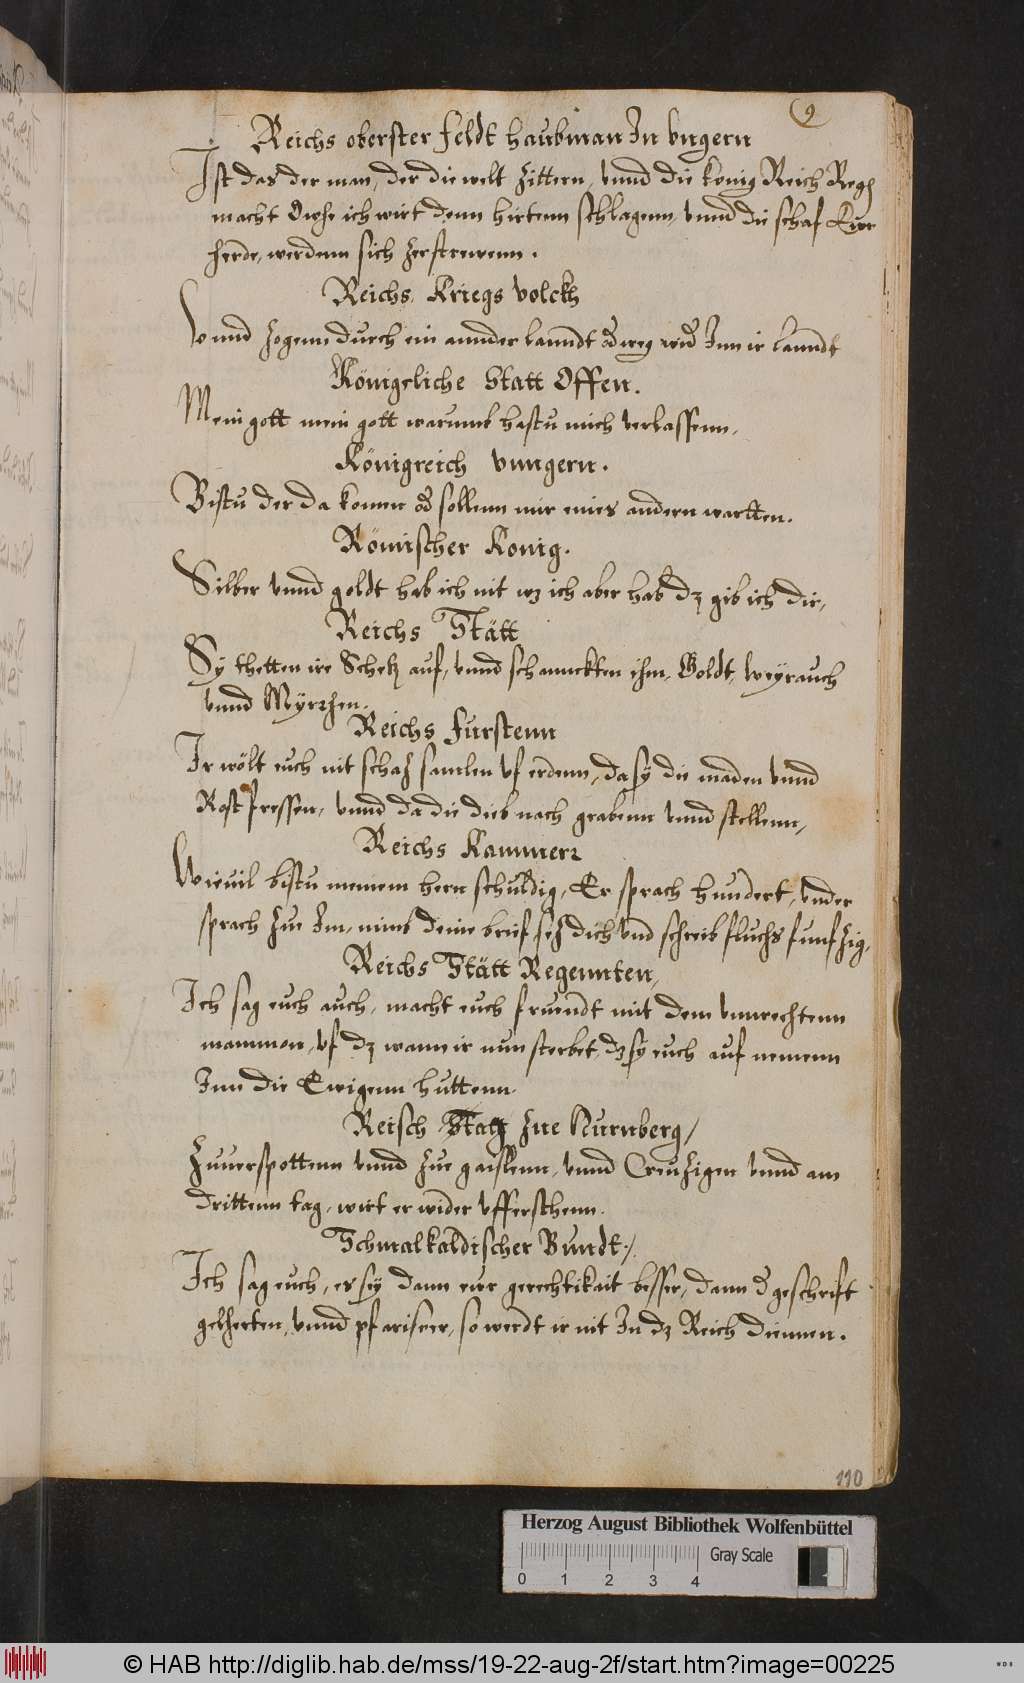 9
Reichs oberster feldt haubman In vngern
Ist das der man, der die welt zittern, vnnd die konig Reich Reg
macht ich wirt denn hirtenn schlagenn, vnnd die schaf Eur
herde, werdenn sich zerstrewenn.
Reichs Kriegs volckh
Vnnd zogenn durch ein annder lanndt weg Inn ir lanndt
Königeliche Statt Offen.
Mein gott mein gott warumb hastu mich verlassenn,
Königreich vnngern.
Bistu der da komen od sollenn mir eines andern wartten.
Römischer Konig.
Silber vnnd goldt hab ich nit wz ich aber hab dz gib ich dir,
Reichs Stätt
Sy thetten ire Schetz auf, vnnd schannckten ihm, Goldt, weyrauch
vnnd Myrrhen.
Reichs fürstenn
Ir wölt euch nit schaz samlen vf erdenn, da sy die maden vnnd
Rost fressen, vnnd da die dieb nach grabenn vnnd stellenn,
Reichs Kammerr
Wieuil bistu meinem hern schuldig, Er sprach hundert, vnder
sprach zue Im, nimb deine brief sez dich vnd schreib fluchs funfzig,
Reichs Stätt Regennten,
Ich sag euch auch, macht euch freundt mit dem vnnrechtenn
mammon, vf dz wann ir nun sterbet, dz sy euch auf nemenn
Inn die Ewigenn huttenn.
Reisch Statt zue Nurnberg,
Zuuerspottenn vnnd zue gaislenn, vnnd Creuzigen vnnd am
drittenn tag, wirt er wider vfferstehenn.
Schmalkaldischer Bundt.
Ich sag euch, es sey dann eur gerechtikait besser, dann d geschrift
gelherten, vnnd pfariseer, so werdt ir nit In dz Reich
110
Herzog August Bibliothek Wolfenbüttel
Gray Scale
0 1 2 3 4
© HAB http://diglib.hab.de/mss/19-22-aug-2f/start.htm?image=00225